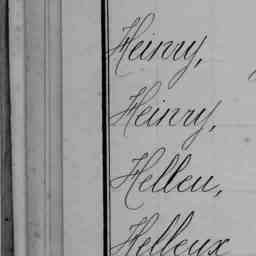 Heinry,
Heinry,
Helleu,
Helleux